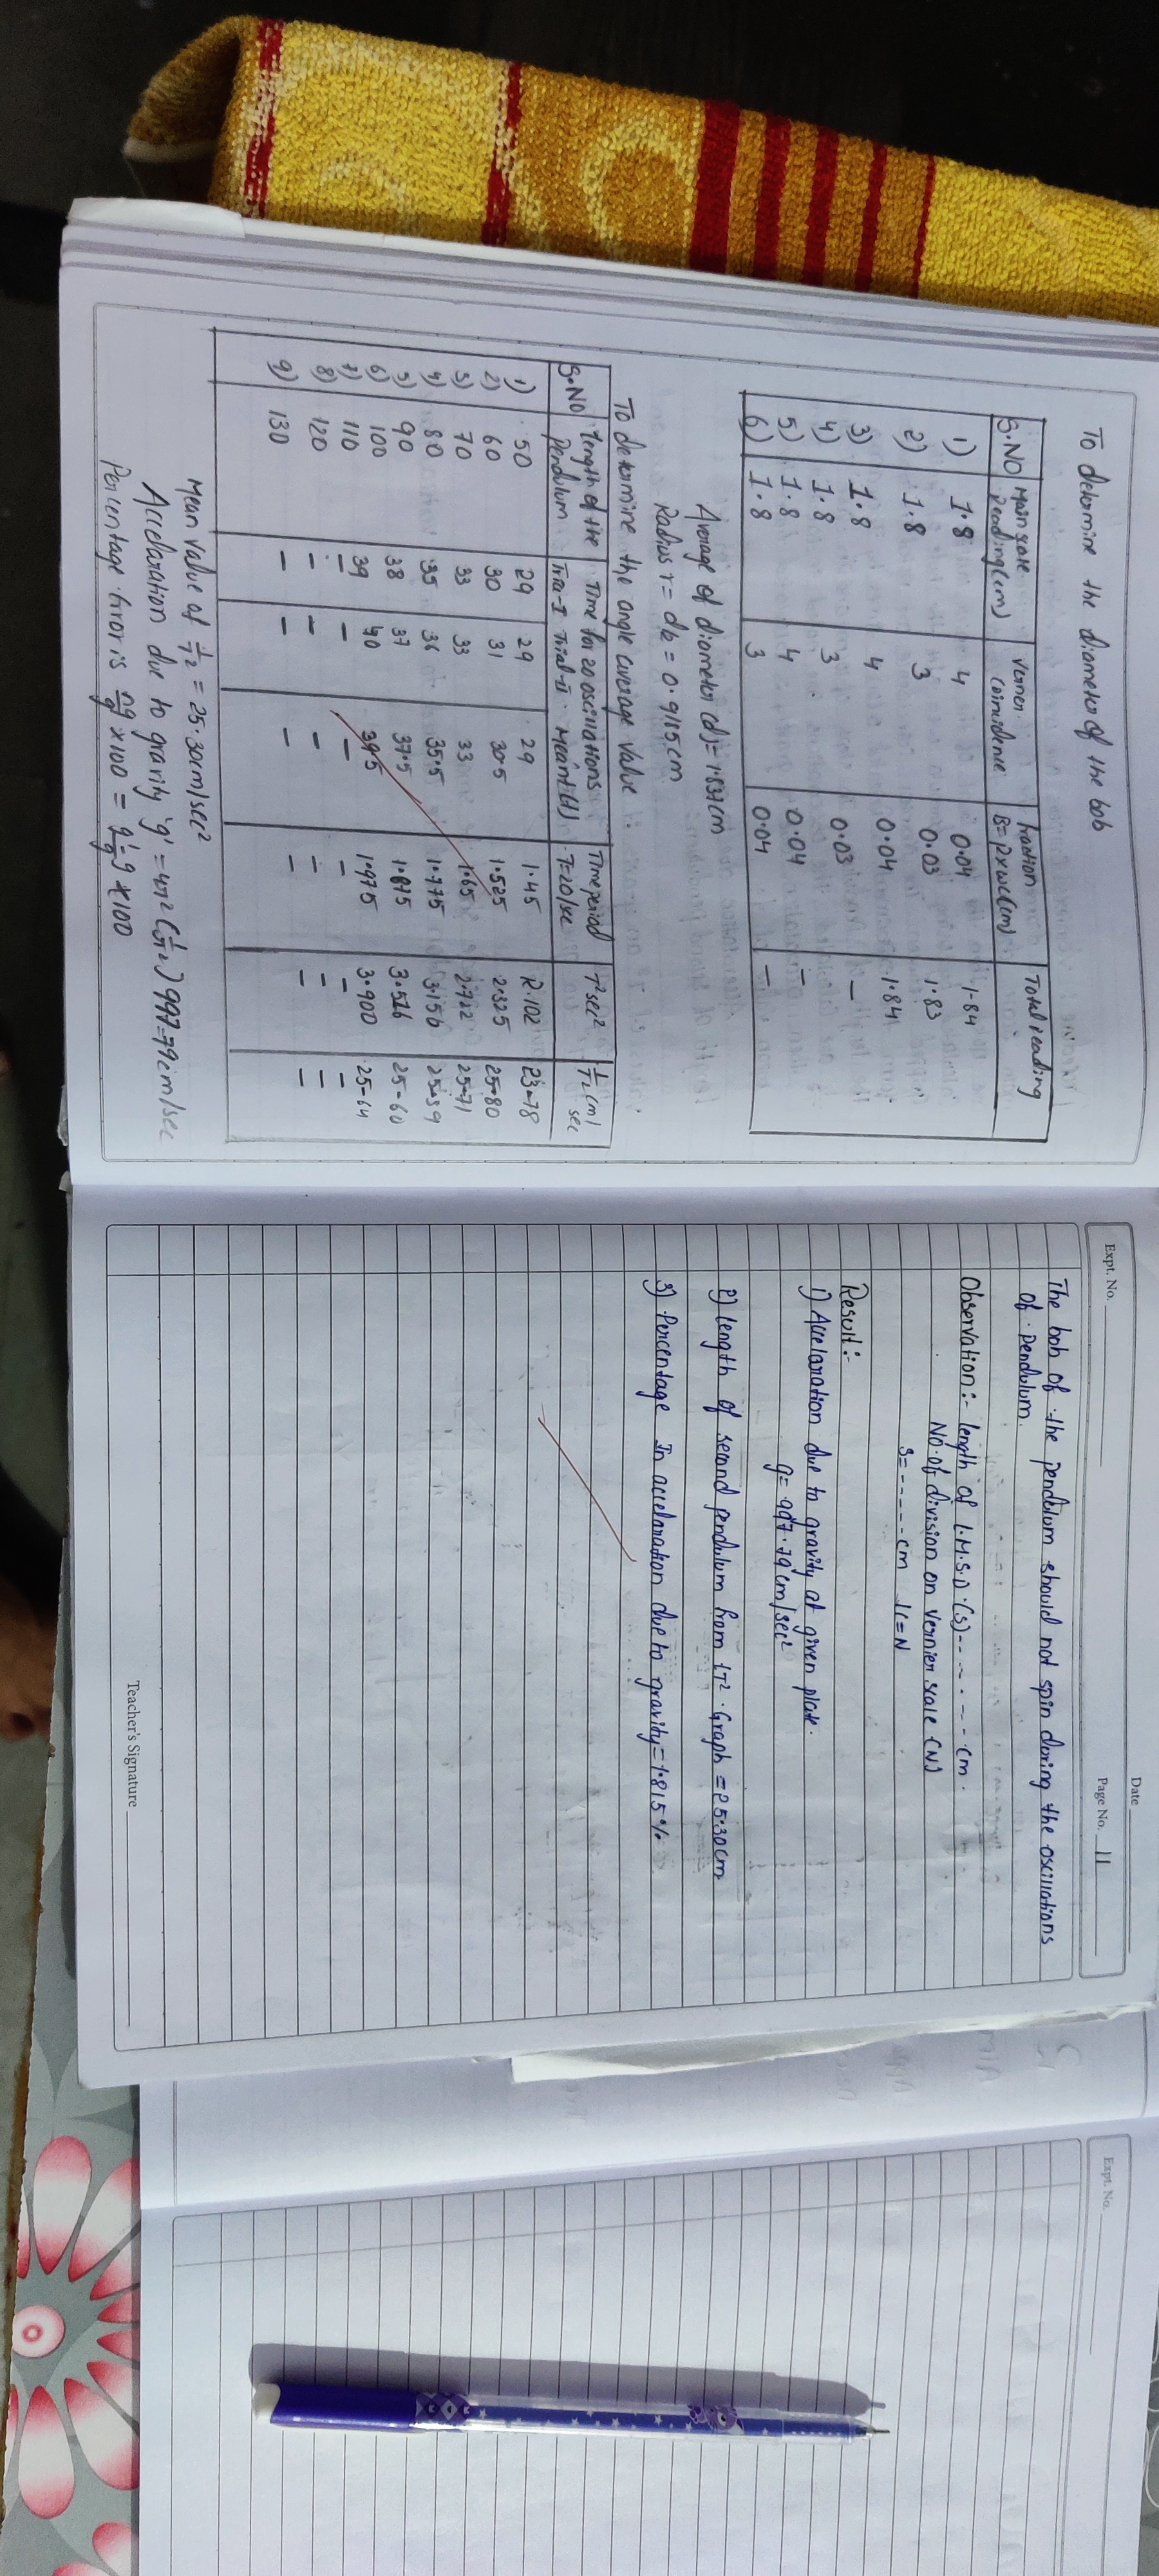 To determine the diameter of the bob
S.NO Main scale reading(cm) Vernier coincidence fraction B=n×vc(cm) Total reading
1) 1.8 4 0.04 1.84
2) 1.8 3 0.03 1.83
3) 1.8 4 0.04 1.84
4) 1.8 3 0.03 —
5) 1.8 4 0.04 —
6) 1.8 3 0.04 —
Average of diameter (d) = 1.837cm
Radius r = d/2 = 0.9185cm
To determine the angle average value
S.NO length of the pendulum Time for 20 oscillations Time period T=20/sec T²sec² cm/sec
Trial-I Trial-II Mean (t)
1) 50 29 29 29 1.45 2.102 23.78
2) 60 30 31 30.5 1.525 2.325 25.80
3) 70 33 33 33 1.65 2.722 25.71
4) 80 35 36 35.5 1.775 3.156 25.59
5) 90 38 37 37.5 1.875 3.516 25.60
6) 100 39 40 39.5 1.975 3.900 25.64
7) 110 — — — — — —
8) 120 — — — — — —
9) 130 — — — — — —
Mean value of = 25.30cm/sec²
Accelaration due to gravity 'g' = 4π² 997.79cm/sec
Percentage. Error is × 100 = × 100
Expt. No.
Date
Page No. 11
The bob of the pendulum should not spin during the oscillations
of pendulum.
Observation:- length of 1.M.S.D.(S)------cm.
NO.of division on vernier scale (N)
S=------cm
Result:-
1) Accelaration due to gravity at given plate.
g= 997.79cm/sec²
2) length of second pendulum from LT² Graph = 25.30cm
3) Percentage In accelaration due to gravity=1.815%
Teacher's Signature
Expt. No.